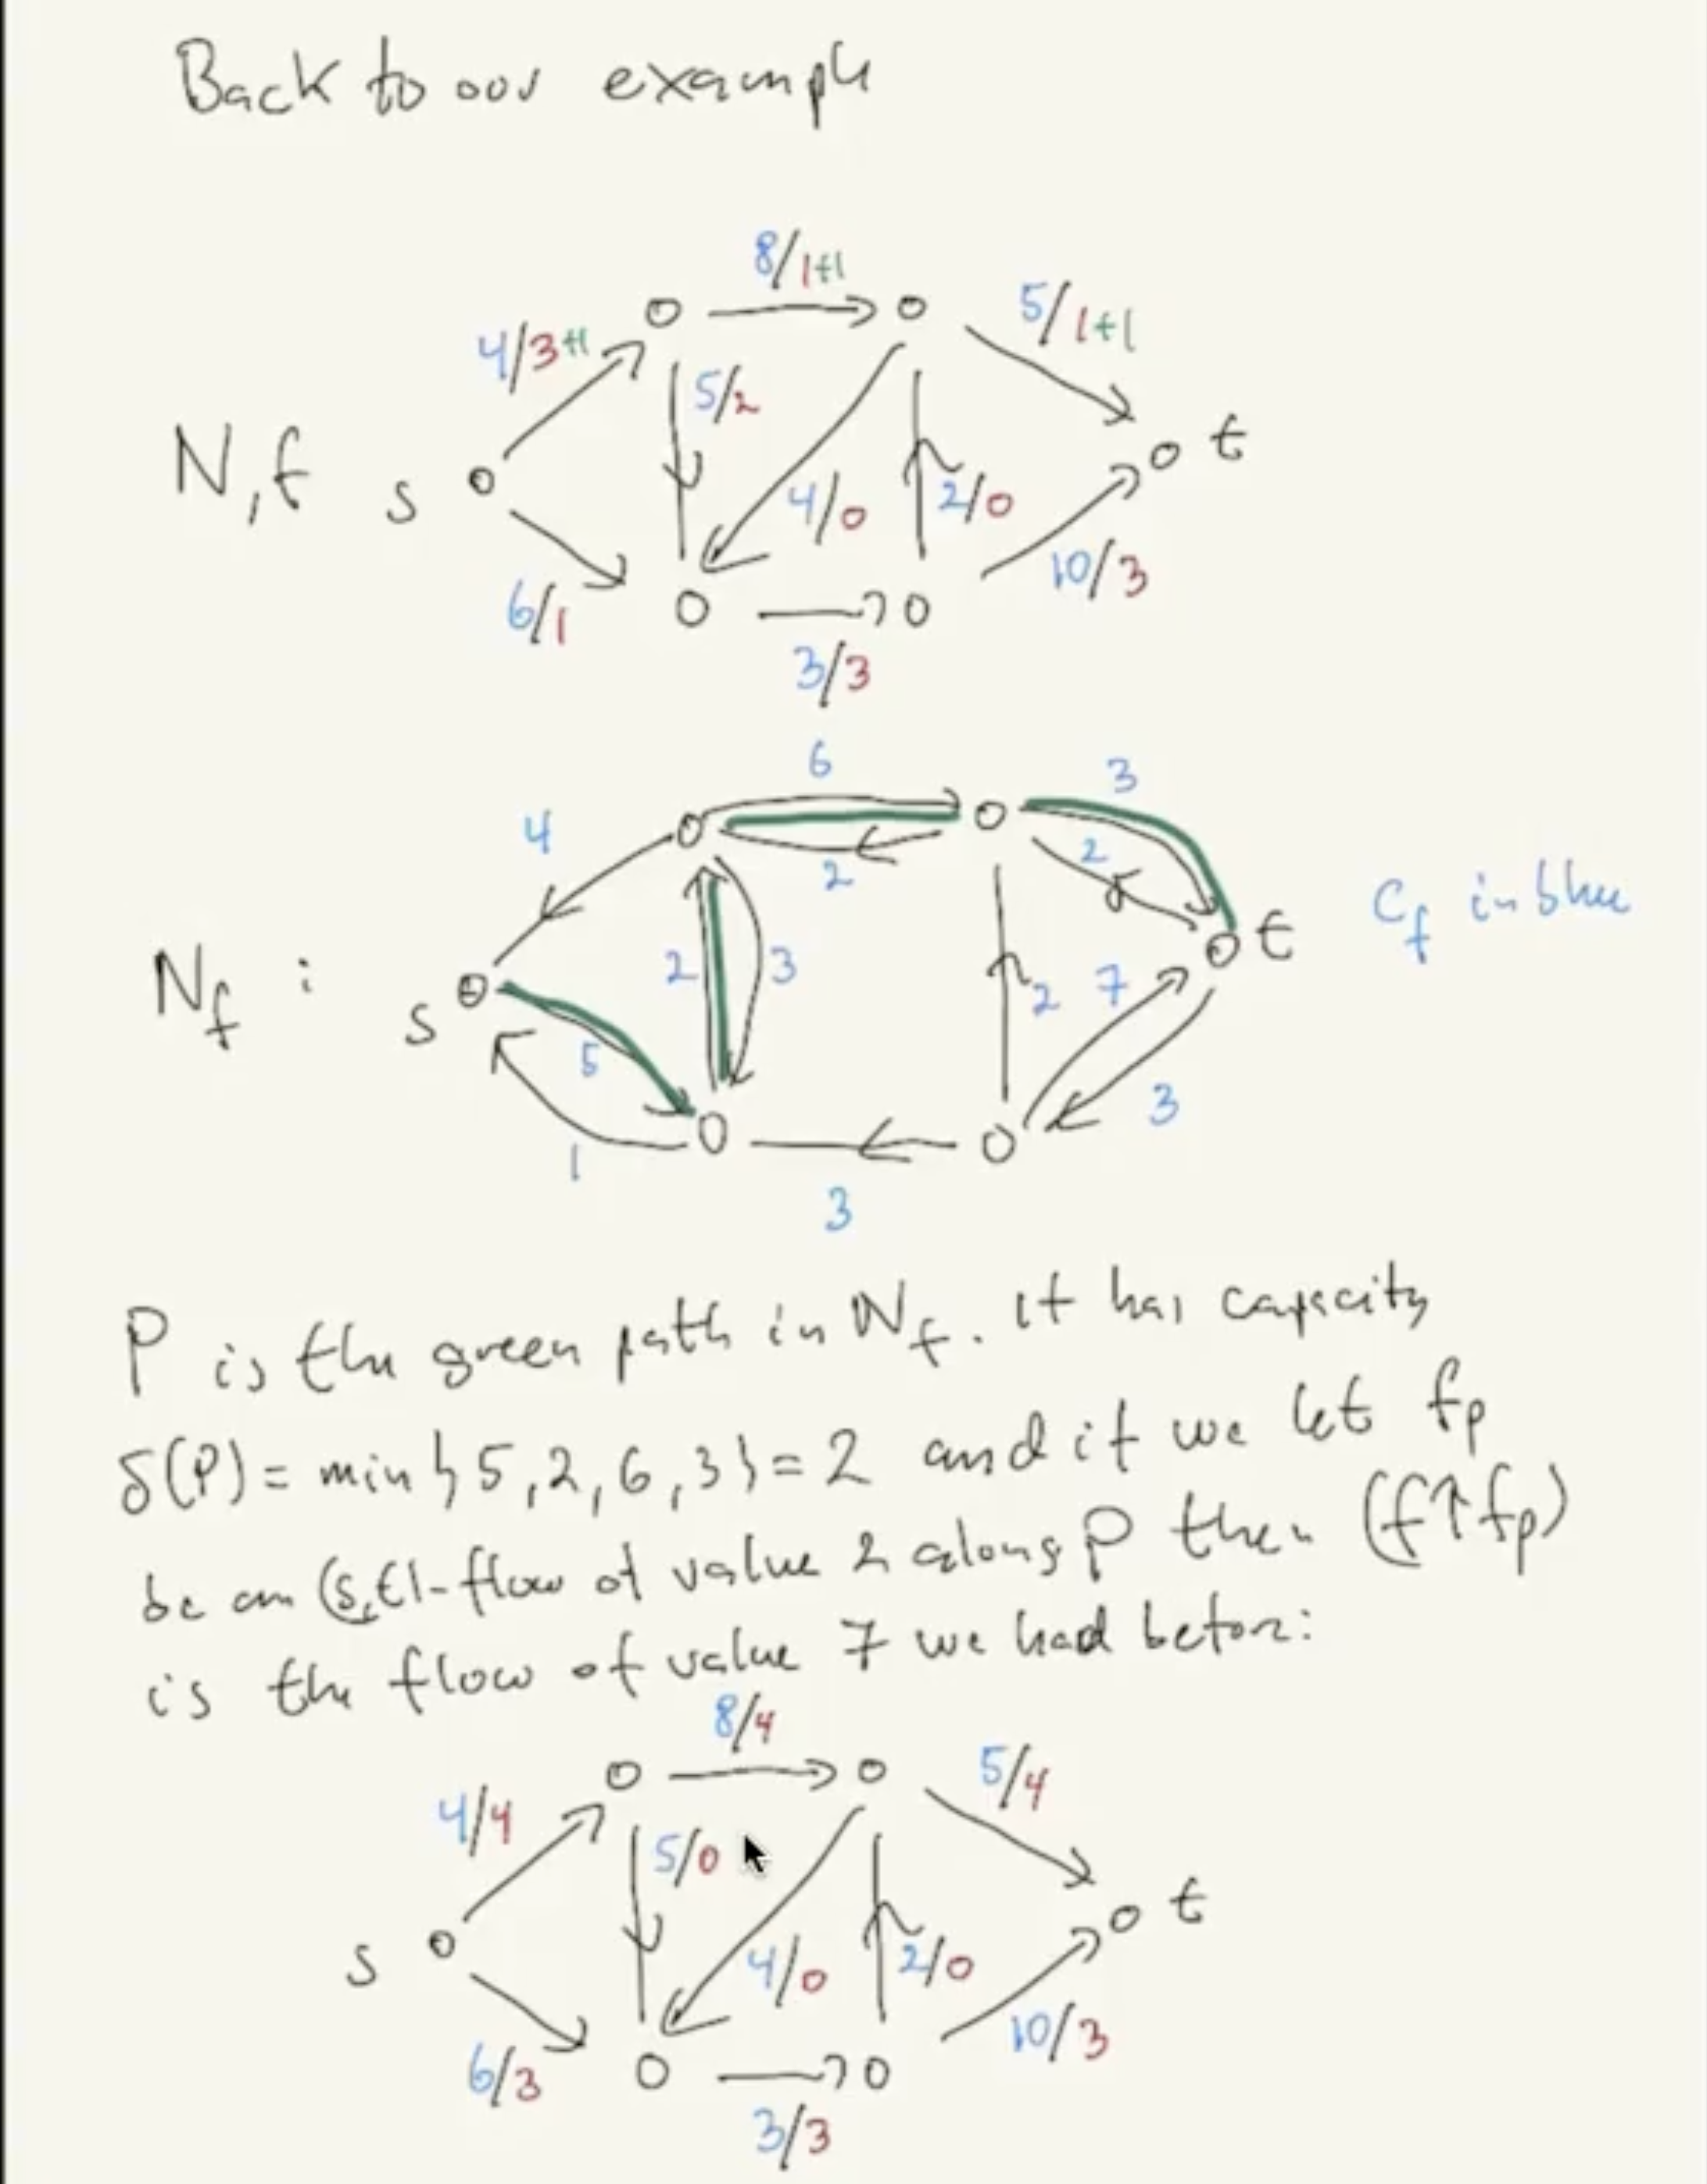 Back to our example
8/1+1
5/1+1
4/3+1
5/2
N,f
s
t
4/0
2/0
6/1
10/3
3/3
6
3
4
2
2
N_f :
s
2
3
t
C_f in blue
5
2
7
1
3
3
P is the green path in N_f. it has capacity
δ(P) = min{5,2,6,3} = 2 and if we let f_P
be an (s,t)-flow of value 2 along P then (f↑f_P)
is the flow of value 7 we had before:
8/4
5/4
4/4
5/0
s
t
4/0
2/0
6/3
10/3
3/3